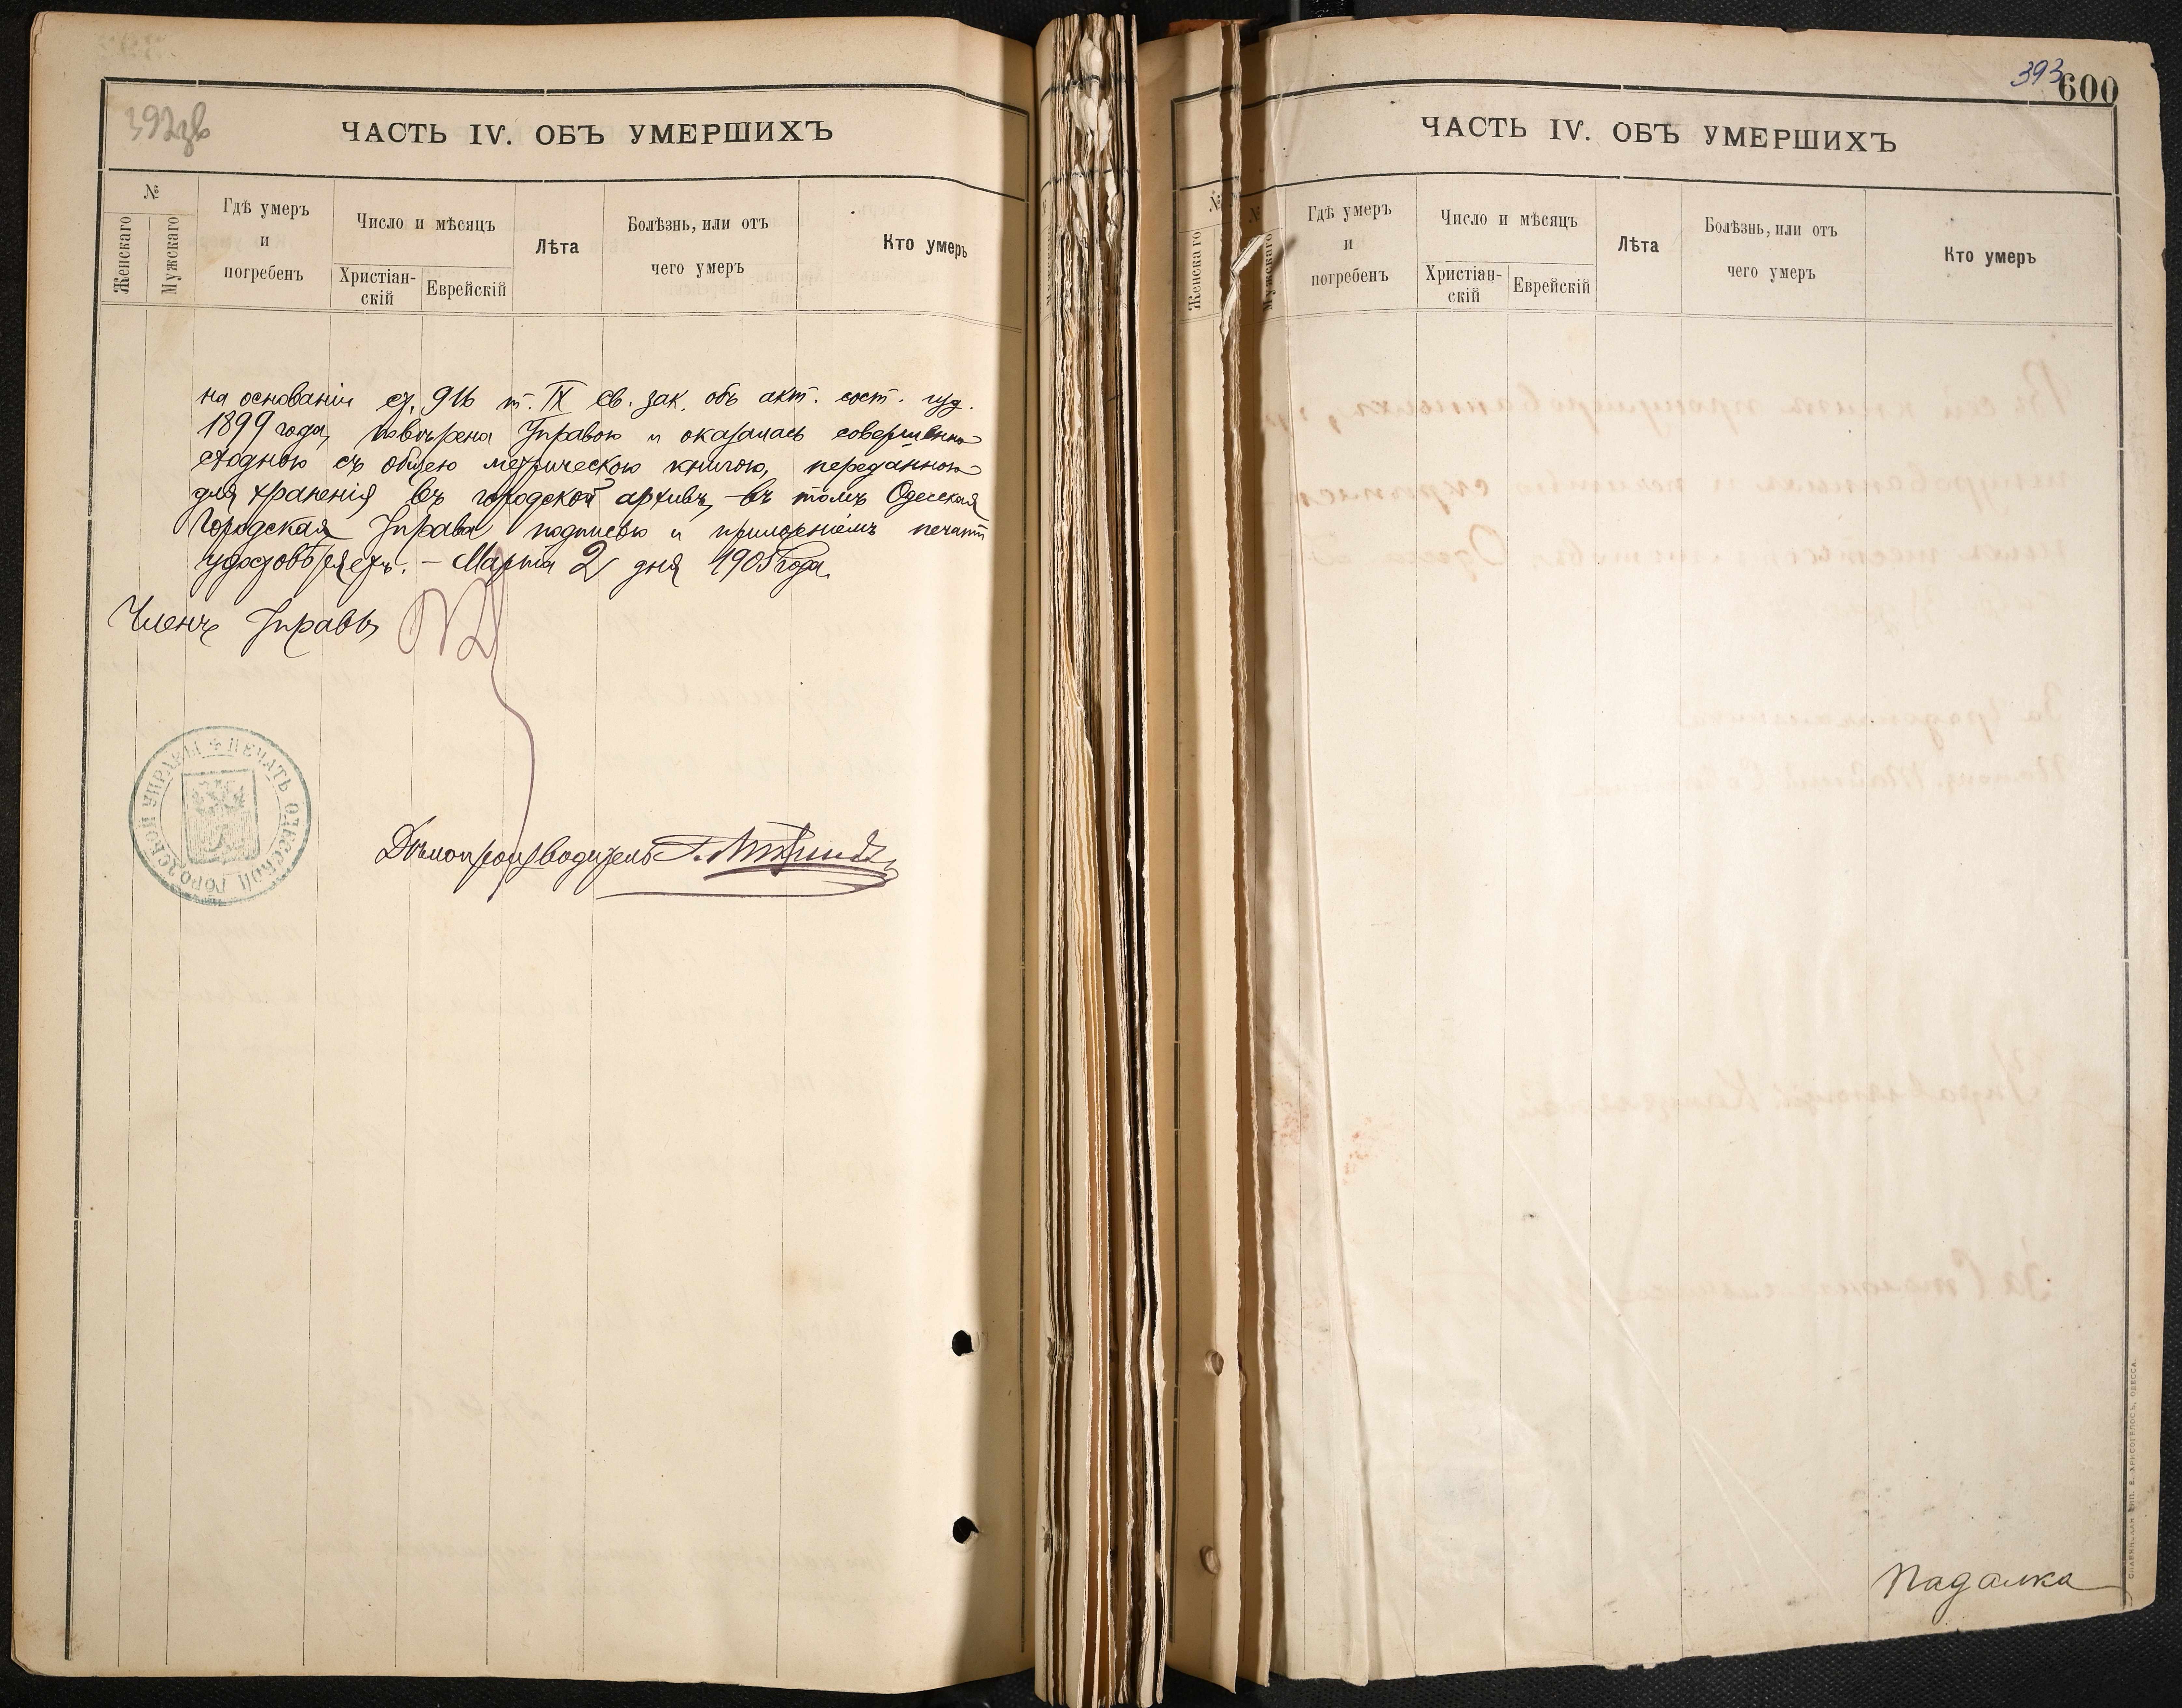 392зв
ЧАСТЬ IV. ОБЪ УМЕРШИХЪ
№
Женскаго
Мужскаго
Гдѣ умеръ
и
погребенъ
Число и мѣсяцъ
Христіан-
скій
Еврейскій
Лѣта
Болѣзнь, или отъ
чего умеръ
Кто умеръ
на основаніи ст. 916 т. IX св. зак. объ акт. сост. изд.
1899 года, повѣрена Управою и оказалась совершенно
сходною съ общею метрическою книгою, переданною
для храненія въ городской архивъ, – въ томъ Одесская
Городская Управа подписью и приложеніемъ печати
удостовѣряетъ. – Марта 2 дня 1905 года.
Членъ Управы
ПЕЧАТЬ ОДЕССКОЙ ГОРОДСКОЙ УПРАВЫ
Дѣлопроизводитель
393
600
ЧАСТЬ IV. ОБЪ УМЕРШИХЪ
№
№
Женскаго
Мужскаго
Гдѣ умеръ
и
погребенъ
Число и мѣсяцъ
Христіан-
скій
Еврейскій
Лѣта
Болѣзнь, или отъ
чего умеръ
Кто умеръ
Падалка